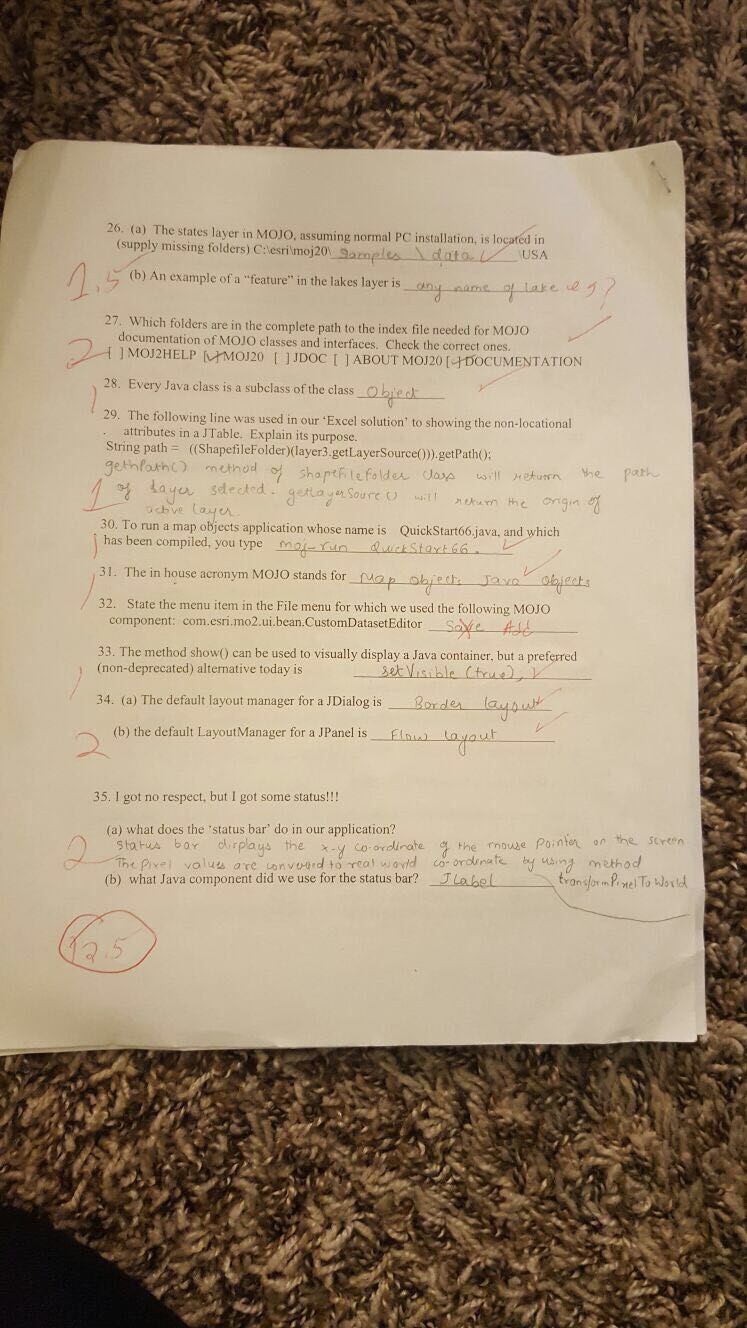 26. (a) The states layer in MOJO, assuming normal PC installation, is located in
(supply missing folders) C:\esri\moj20\ samples \ data \USA
1.5 (b) An example of a "feature" in the lakes layer is any name of lake eg?
27. Which folders are in the complete path to the index file needed for MOJO
documentation of MOJO classes and interfaces. Check the correct ones.
2 [ ] MOJ2HELP [✓] MOJ20 [ ] JDOC [ ] ABOUT MOJ20 [✓] DOCUMENTATION
1 28. Every Java class is a subclass of the class Object
29. The following line was used in our 'Excel solution' to showing the non-locational
attributes in a JTable. Explain its purpose.
String path = ((ShapefileFolder)(layer3.getLayerSource())).getPath();
gethPath() method of shapefilefolder class will return the path
1 of layer selected. getLayerSource() will return the origin of
active layer.
30. To run a map objects application whose name is QuickStart66.java, and which
1 has been compiled, you type moj-run QuickStart66.
1 31. The in house acronym MOJO stands for Map objects Java objects
32. State the menu item in the File menu for which we used the following MOJO
component: com.esri.mo2.ui.bean.CustomDatasetEditor Save Add
33. The method show() can be used to visually display a Java container, but a preferred
1 (non-deprecated) alternative today is setVisible (true);
34. (a) The default layout manager for a JDialog is Border layout
2 (b) the default LayoutManager for a JPanel is Flow layout
35. I got no respect, but I got some status!!!
(a) what does the 'status bar' do in our application?
Status bar displays the x-y co-ordinate of the mouse pointer on the screen
2 The Pixel values are converted to real world co-ordinate by using method
(b) what Java component did we use for the status bar? JLabel transformPixelToWorld
12.5